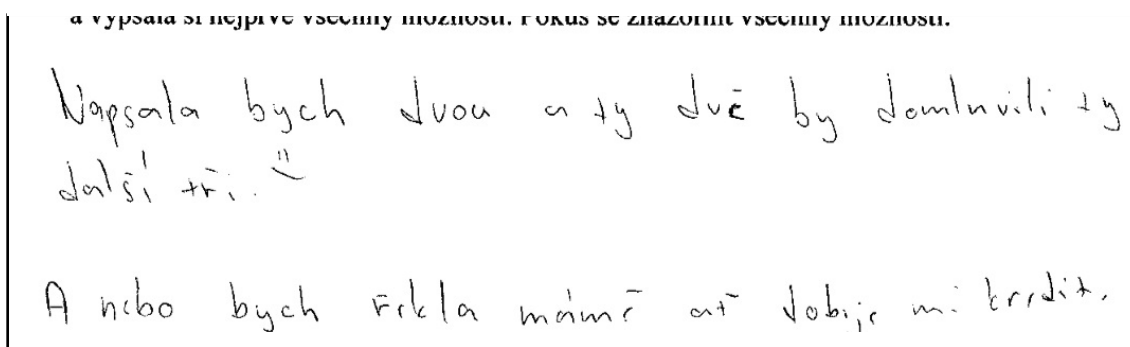 a vypsala si nejprve všechny možnosti. Pokus se znázornit všechny možnosti.
Napsala bych dvou a ty dvě by domluvili ty
další tři. ¨)
A nebo bych řekla mámě ať dobije mi kredit.